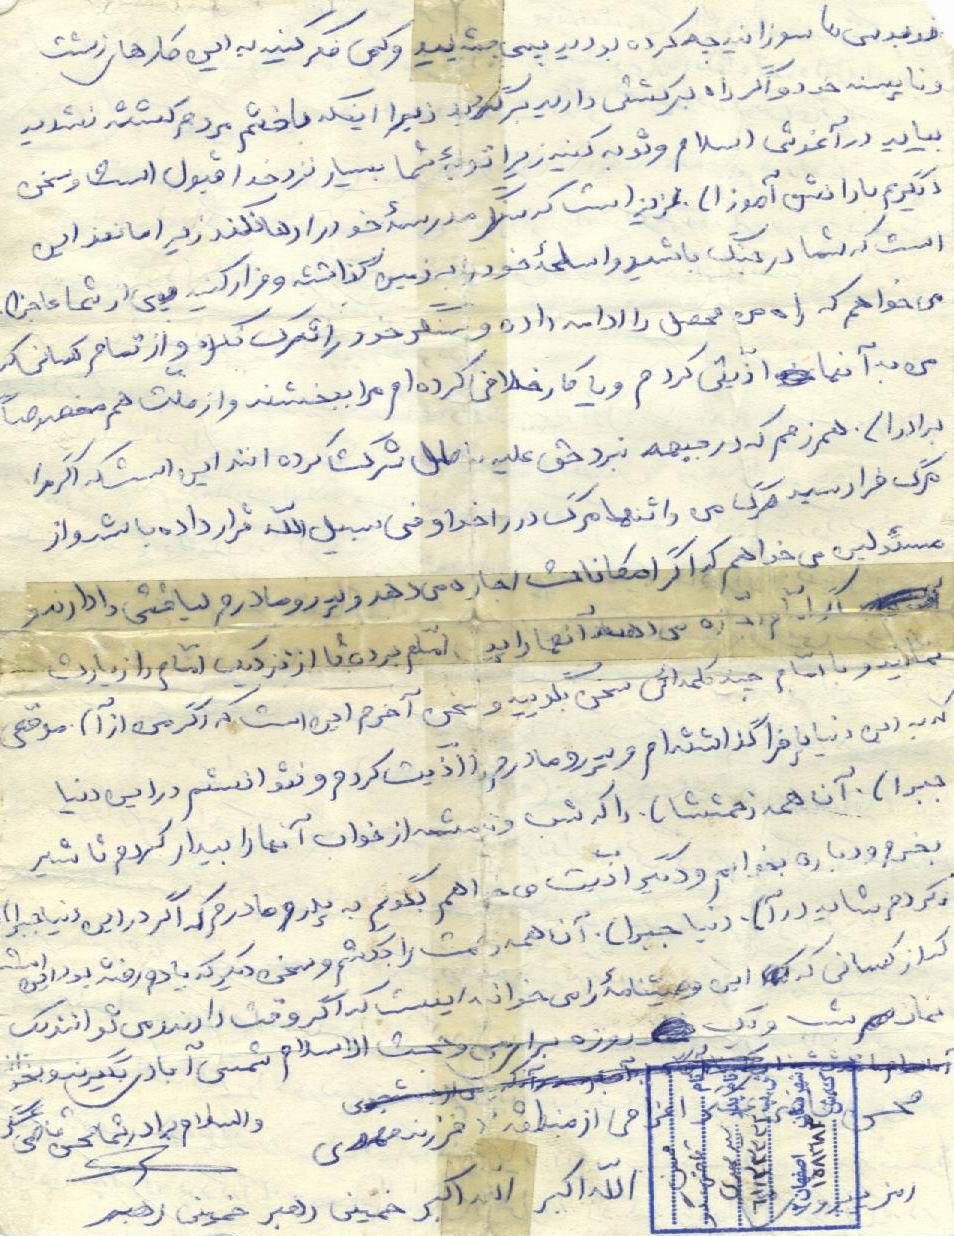 سوزاندیم چه کرده بودید پس بشینید و کمی فکر کنید به این کارهای زشت
و ناپسند خود و اگر راه برگشتی دارید برگردید زیرا اینکه با خشم مردم کشته نشوید
بیایید در آغوش اسلام و توبه کنید زیرا توبهٔ شما بسیار نزد خدا قبول است و سخن
دیگرم با دانش آموزان عزیز است که سنگر مدرسهٔ خود را رها نکنند زیرا مانند این
است که شما در جنگ باشید و اسلحهٔ خود را به زمین گذاشته و فرار کنید پس از شما عاجزانه
می خواهم که راه من محصل را ادامه داده و سنگر خود را ترک نکنید و از تمام کسانی که
من به آنها اذیتی کردم و یا کار خلافی کرده ام مرا ببخشند و از ملت هم مخصوصاً
برادران همرزمم که در جبهه نبرد حق علیه باطل شرکت کرده اند این است که اگر مرا
مرگ فرا رسید مرگ من را تنها مرگ در راه خدا و فی سبیل الله قرار داده باشد و از
مسئولین می خواهم که اگر امکاناتش اجازه می دهد و پدر و مادرم لیاقتش را دارند
آنها را پیش امام برده تا از نزدیک امام را زیارت
نمایند و با امام چند کلمه ای سخن بگویید و سخن آخرم این است که اگر من از آن موقعی
که به این دنیا پا فرا گذاشته ام و پدر و مادرم را اذیت کردم و نتوانستم در این دنیا
جبران آن همه زحمتشان را که شب از خواب آنها را بیدار کردم تا شیر
بخورم و دوباره بخوابم و دیگر اذیت می خواهم بگویم به پدر و مادرم که اگر در این دنیا جبران
نکردم شاید در آن دنیا جبران آن همه زحمت را بکنم و سخن دیگر که یادم رفته بود این است
که از کسانی که این وصیتنامه را می خوانند اینست که اگر وقت دارند می توانند یک
نماز شب و یک روزه برای من و حجت الاسلام شمس آبادی بگیرند و بخوانند
والسلام برادر شما محسن
فرزند مهدی
الله اکبر الله اکبر خمینی رهبر خمینی رهبر